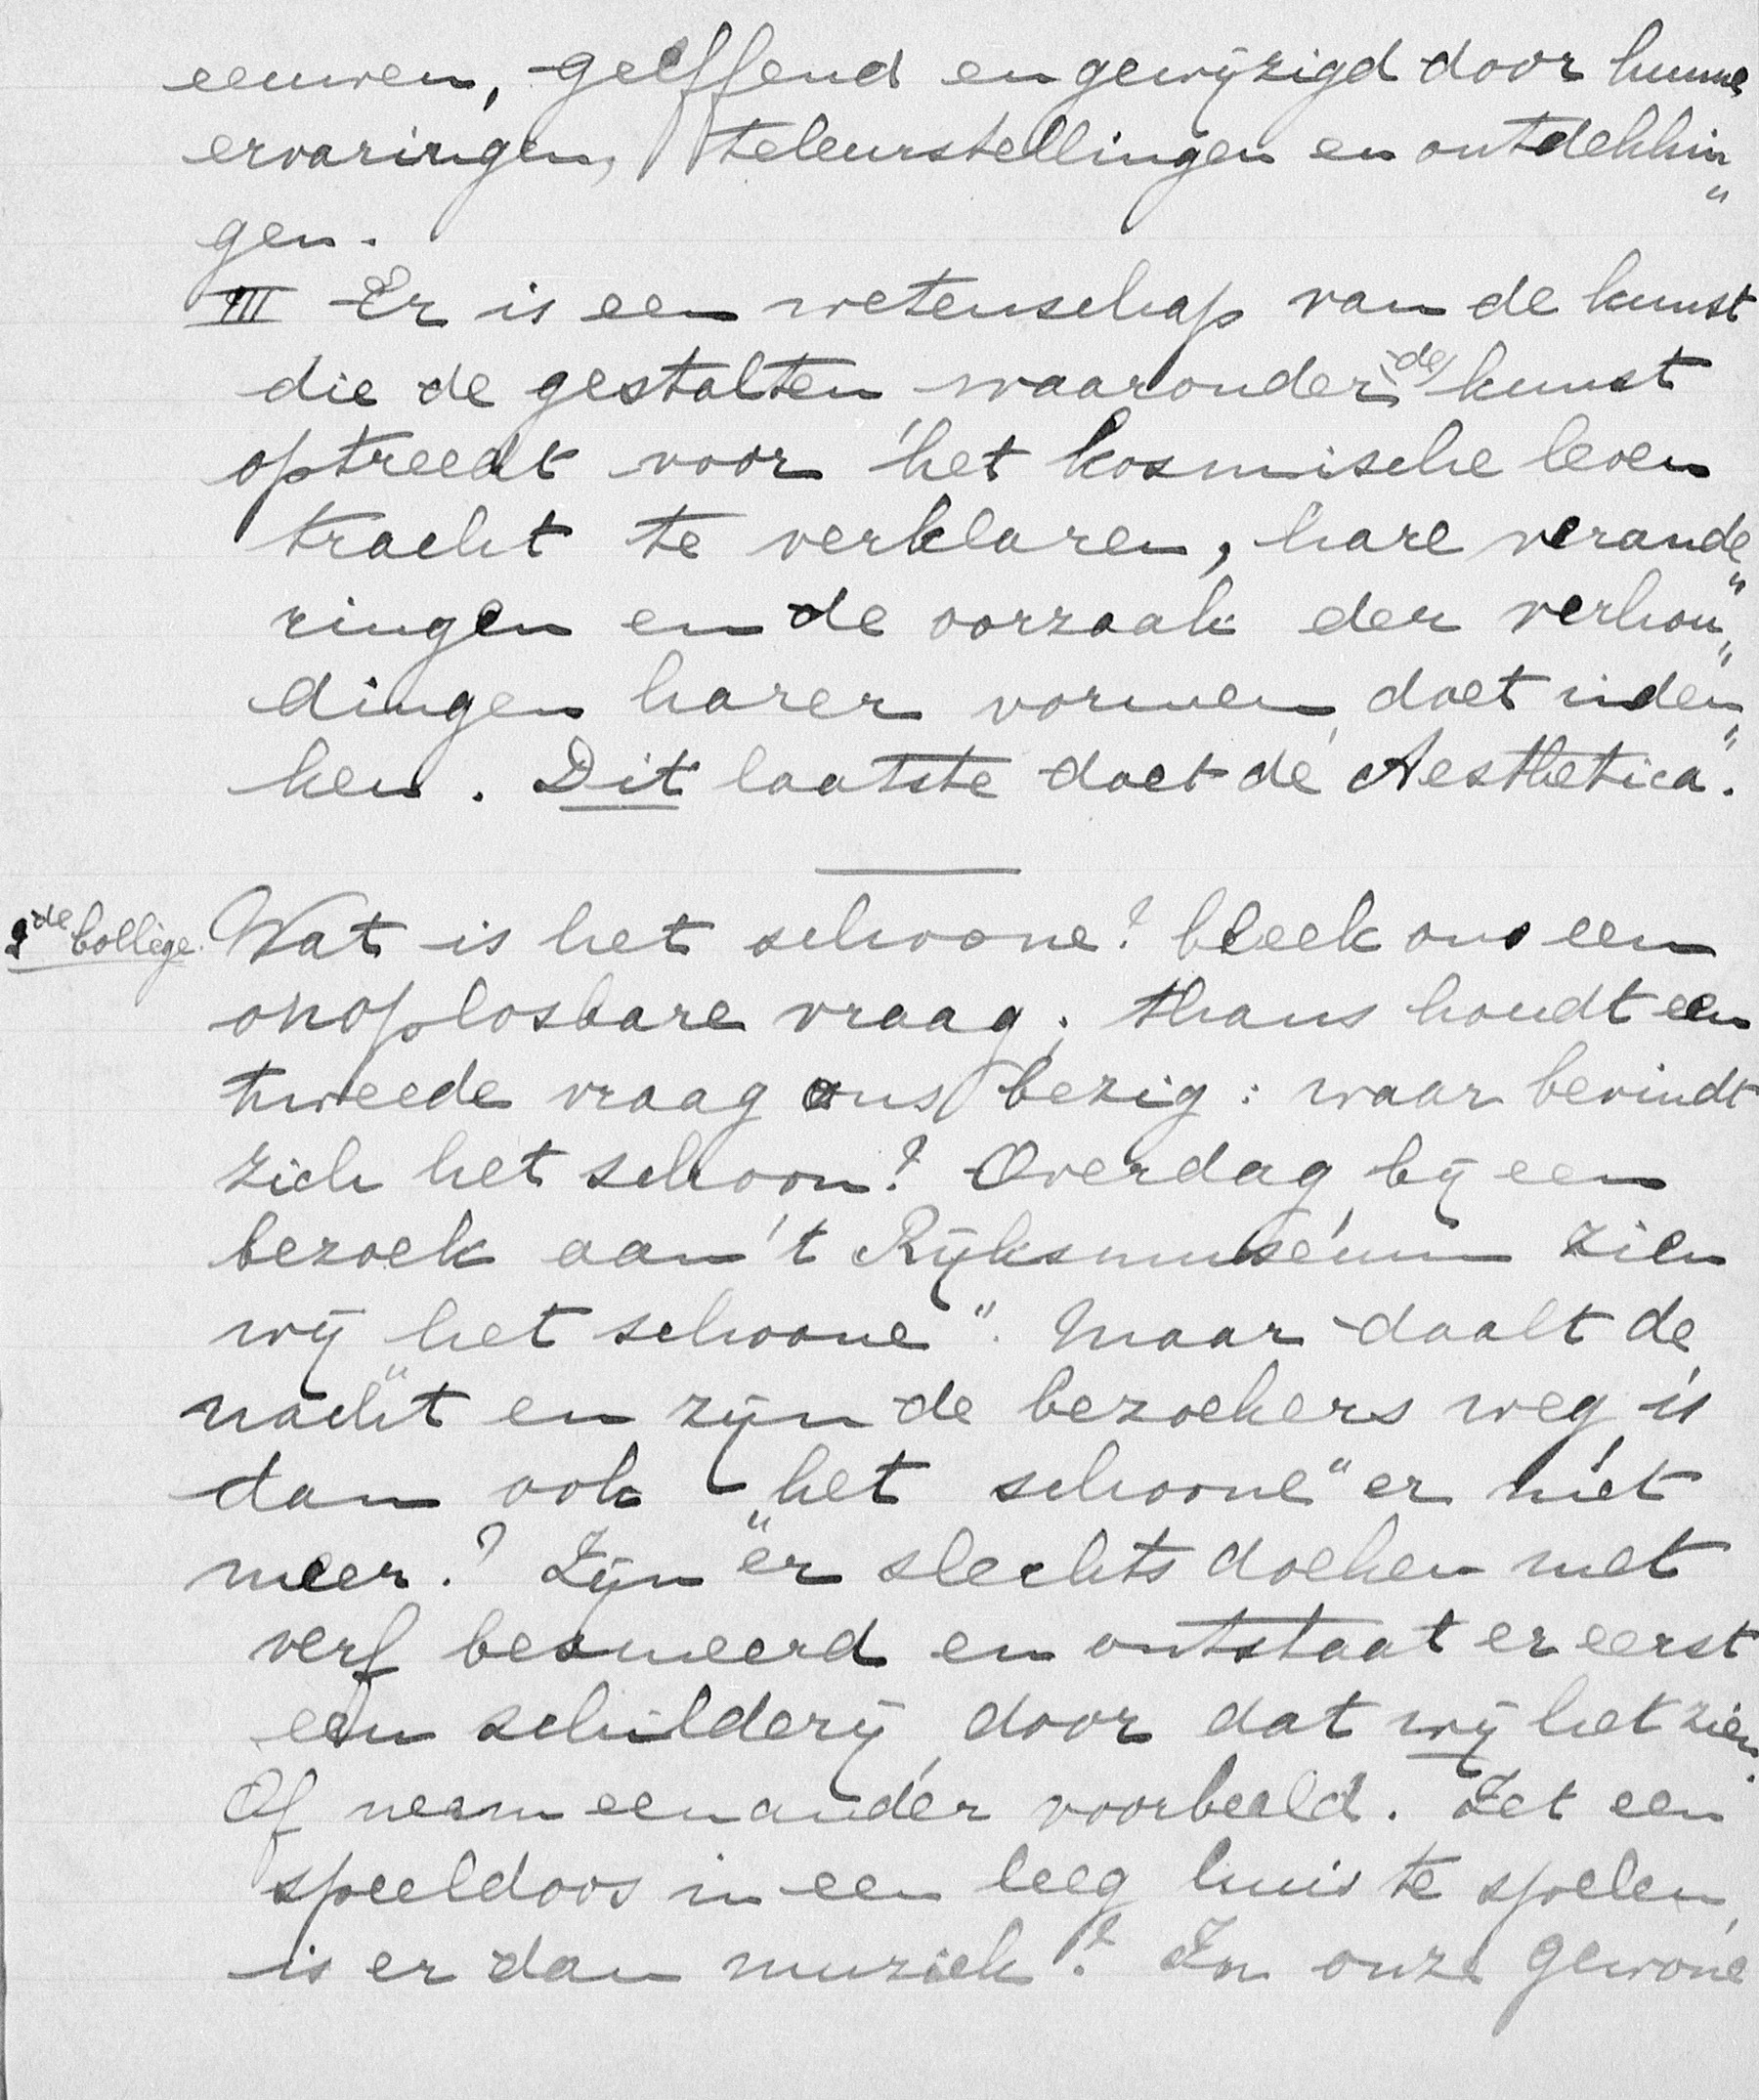 eeuwen, geëffend en gewijzigd door hunne
ervaringen, teleurstellingen en ontdekkin"
gen.
III Er is een wetenschap van de kunst
die de gestalten waaronder de kunst
optreedt voor het kosmische leven
tracht te verklaren, hare verande"
ringen en de oorzaak der verhou"
dingen harer vormen doet inden"
ken. Dit laatste doet de Aesthetica.
2de College. Wat is het schoone? bleek ons een
onoplosbare vraag; thans houdt een
tweede vraag ons bezig: waar bevindt
zich het schoon? Overdag, bij een
bezoek aan 't Rijksmuséum zien
wij „het schoone”. Maar daalt de
nacht en zijn de bezoekers weg, is
dan ook „het schoone” er niet
meer? Zijn er slechts doeken met
verf besmeerd en ontstaat er eerst
een schilderij, door dat wij het zien.
Of neem een ander voorbeeld. Zet een
speeldoos in een leeg huis te spelen,
is er dan muziek? In onze gewone